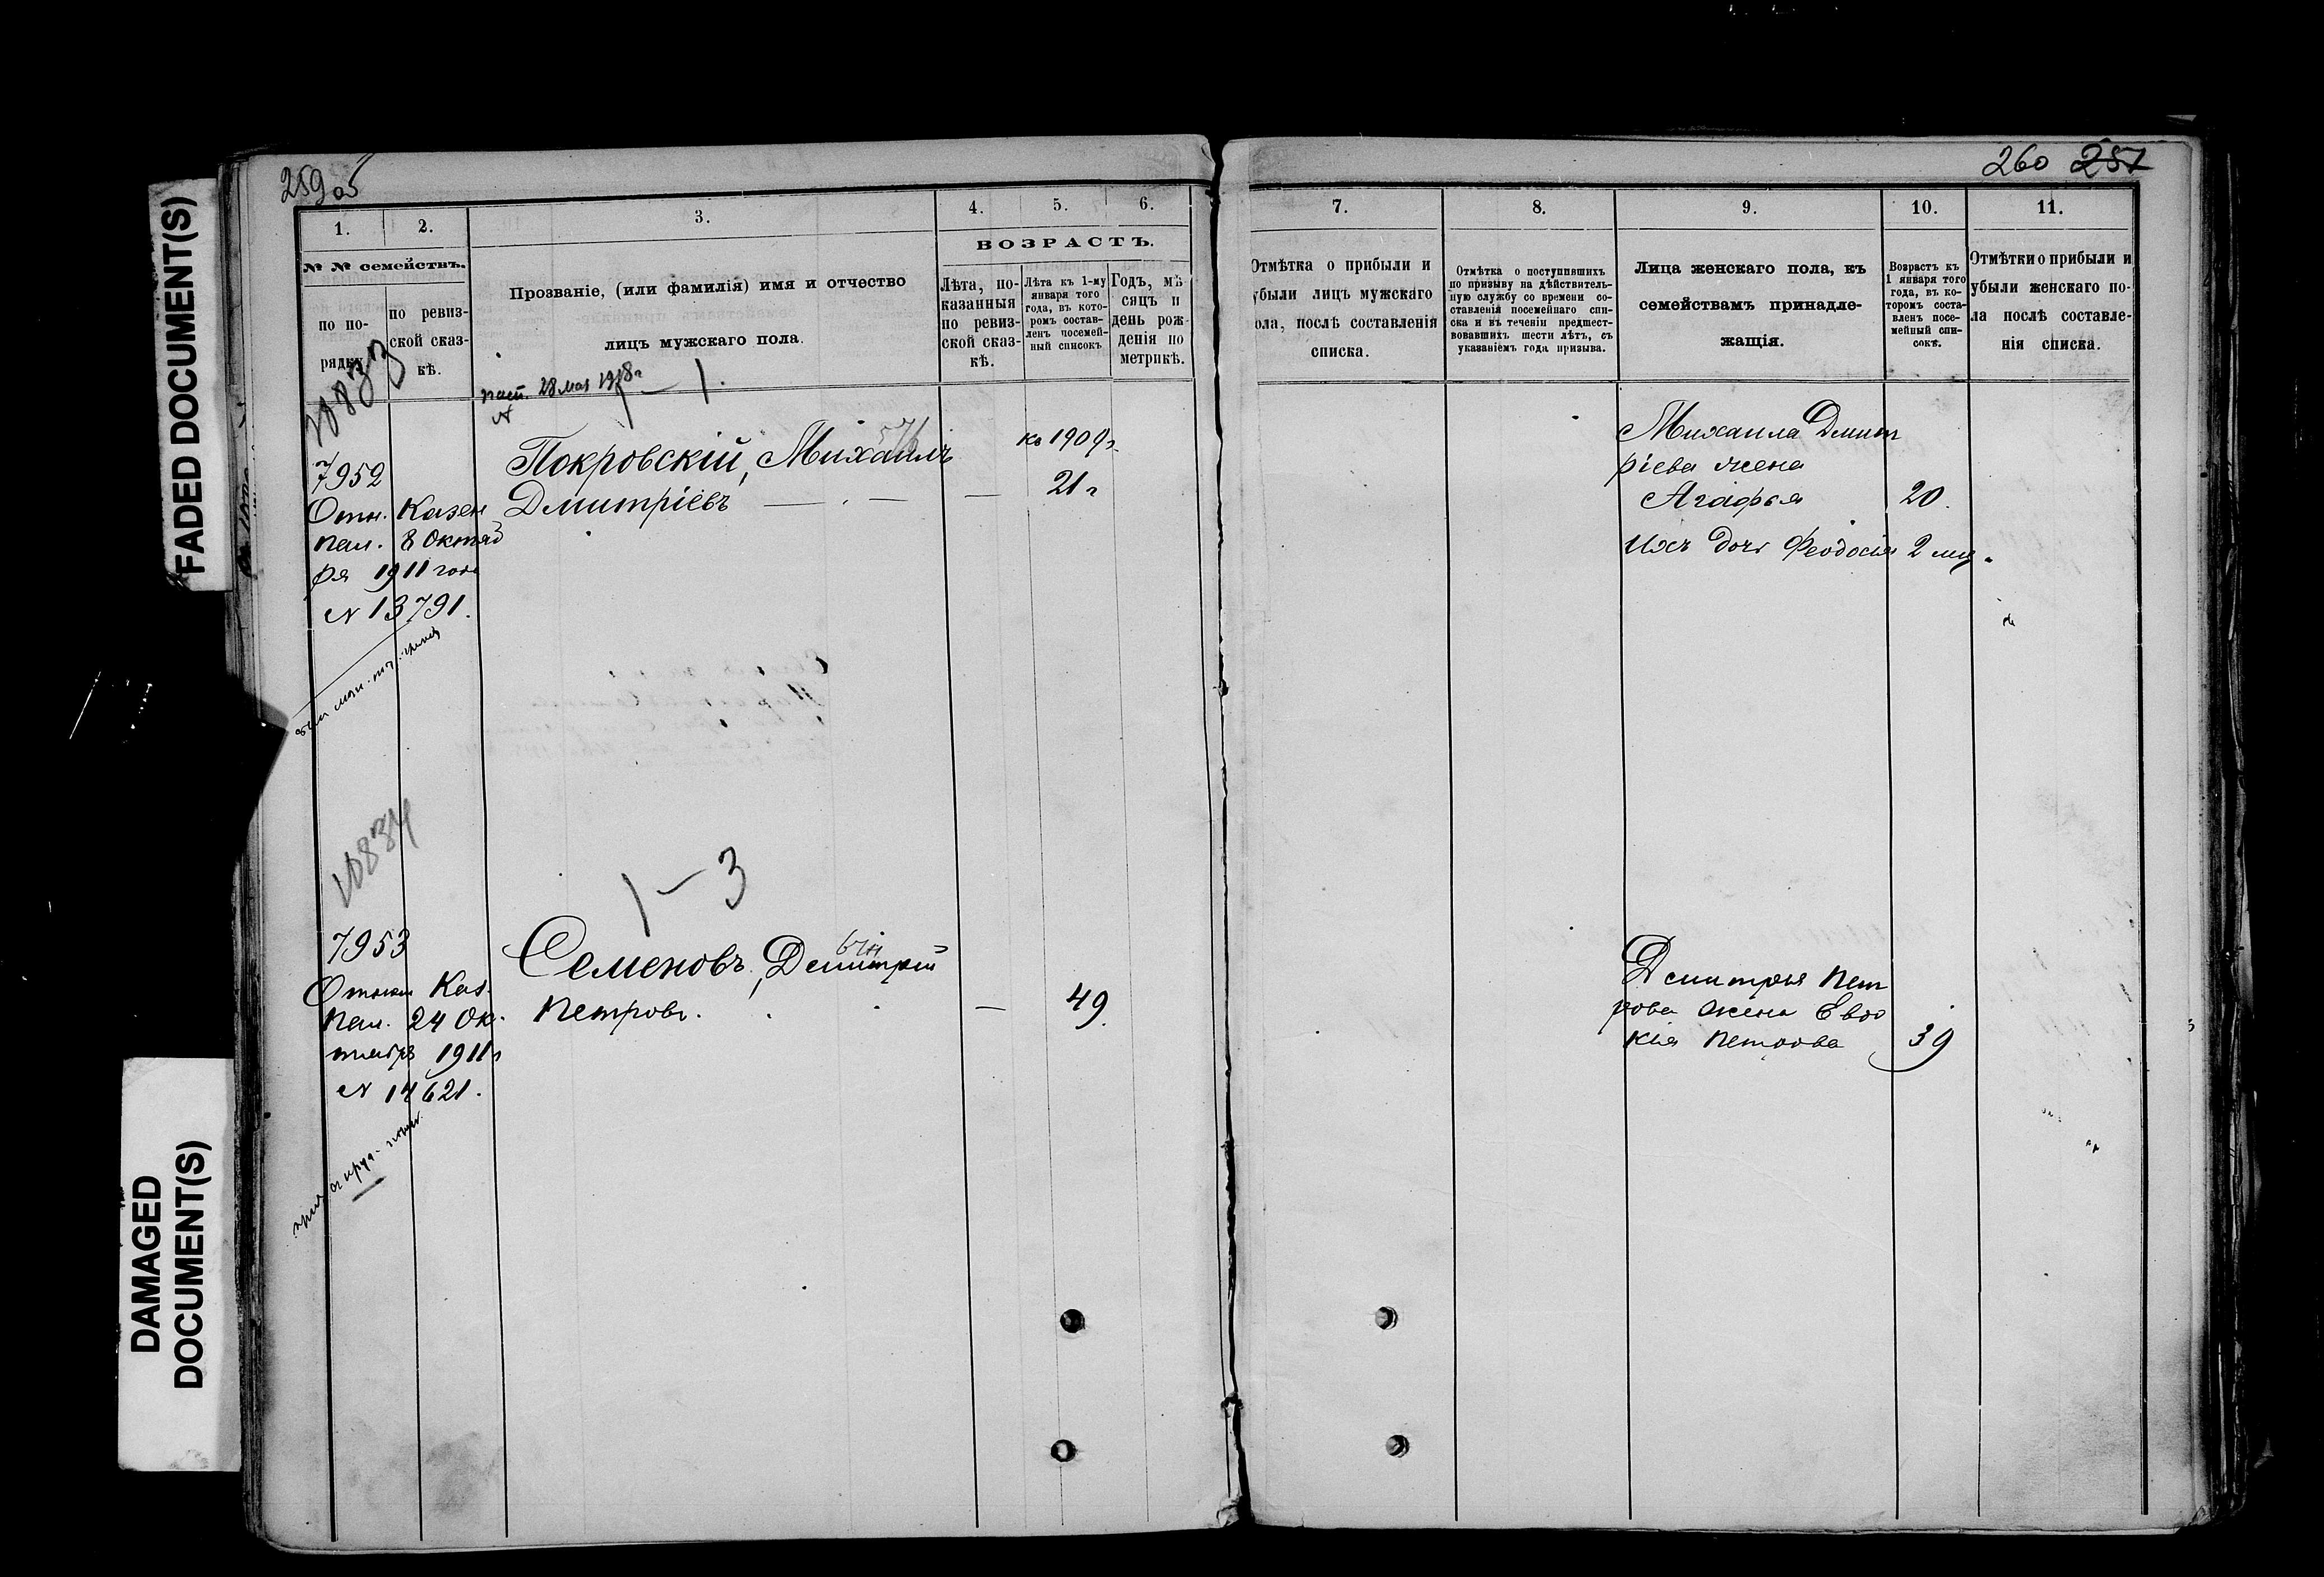 FADED DOCUMENT(S)
DAMAGED
DOCUMENT(S)
259 об
1.
2.
3.
4.
5.
6.
№ № семействъ.
по по-
рядку
по ревиз-
ской сказ-
кѣ.
Прозваніе, (или фамилія) имя и отчество
лицъ мужскаго пола.
ВОЗРАСТЪ.
Лѣта, по-
казанныя
по ревиз-
ской сказ-
кѣ.
Лѣта къ 1-му
января того
года, въ кото-
ромъ состав-
ленъ посемей-
ный списокъ
Годъ, мѣ-
сяцъ и
день рож-
денія по
метрикѣ.
10833
28 мая 1918 г
1
7952
Отн. Казен
пал. 8 Октяб
ря 1911 года
№ 13791.
Покровскій, Михаилъ
Дмитріевъ
—
къ 1909 г.
21 г
10834
1 — 3
7953
Каз.
пал. 24 Ок-
тября 1911 г
№ 14621.
Семеновъ, Дмитрій
Петровъ.
—
49
260 257
7.
8.
9.
10.
11.
Отмѣтка о прибыли и
убыли лицъ мужскаго
ола, послѣ составленія
списка.
Отмѣтка о поступившихъ
по призыву на дѣйствитель-
ную службу со времени со-
ставленія посемейнаго спи-
ска и въ теченіи предшест-
вовавшихъ шести лѣтъ, съ
указаніемъ года призыва.
Лица женскаго пола, къ
семействамъ принадле-
жащія.
Возрастъ къ
1 января того
года, въ ко-
торомъ соста-
вленъ посе-
мейный спи-
сокъ.
Отмѣтки о прибыли и
убыли женскаго по-
ла послѣ составле-
нія списка.
Михаила Дмит
ріева жена
Агафья 20.
ихъ дочь Феодосія 2 мц.
Дмитрія Пет
рова жена Евдо
кія Петрова 39